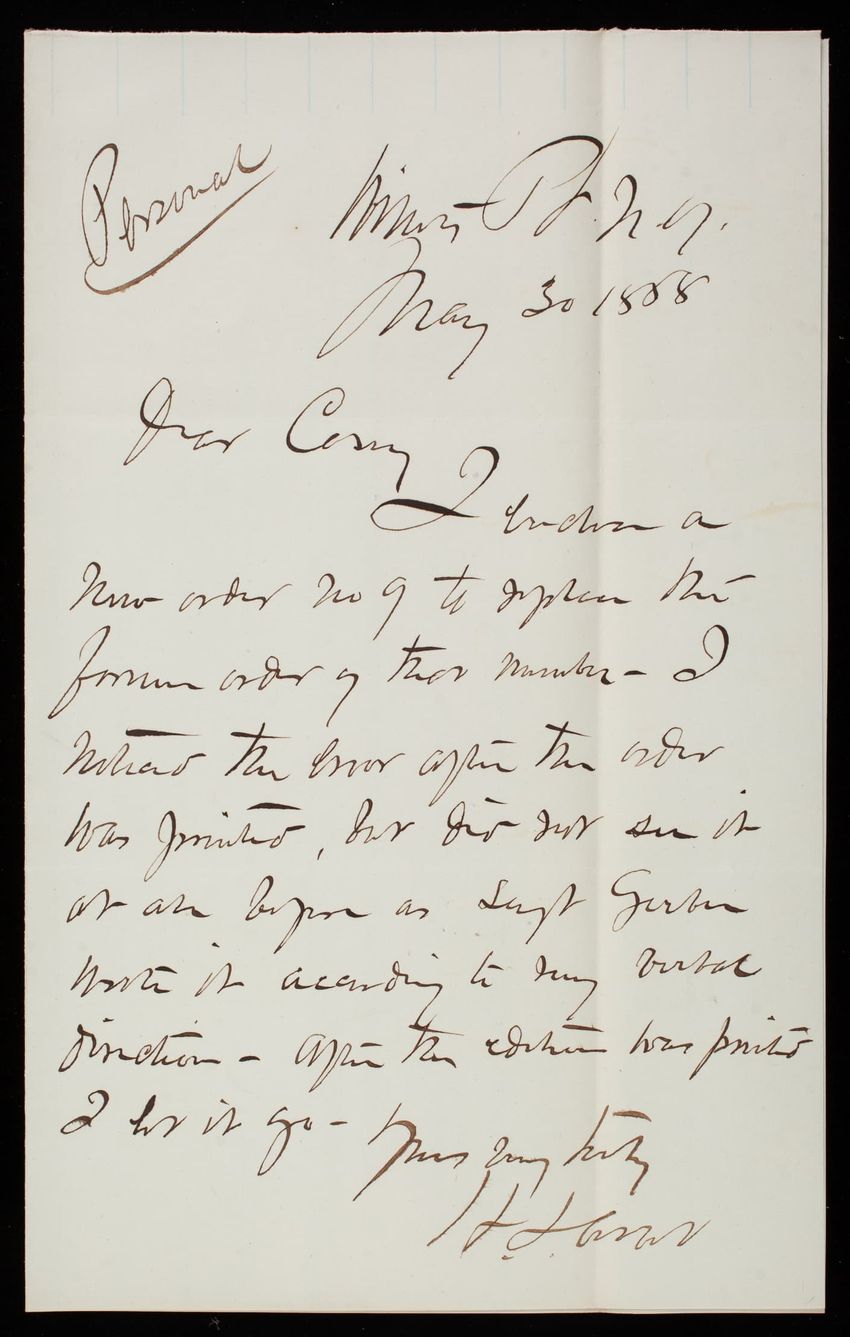 Personal
Willets Pt. N.Y.
May 30 1888
Dear Casey
I enclose a
new order no 9 to replace the
former order of that number - I
noticed the error after the order
was printed, but did not see it
at all before as Sergt Gerber
wrote it according to my verbal
direction - After the edition was printed
I let it go -
Yours very truly